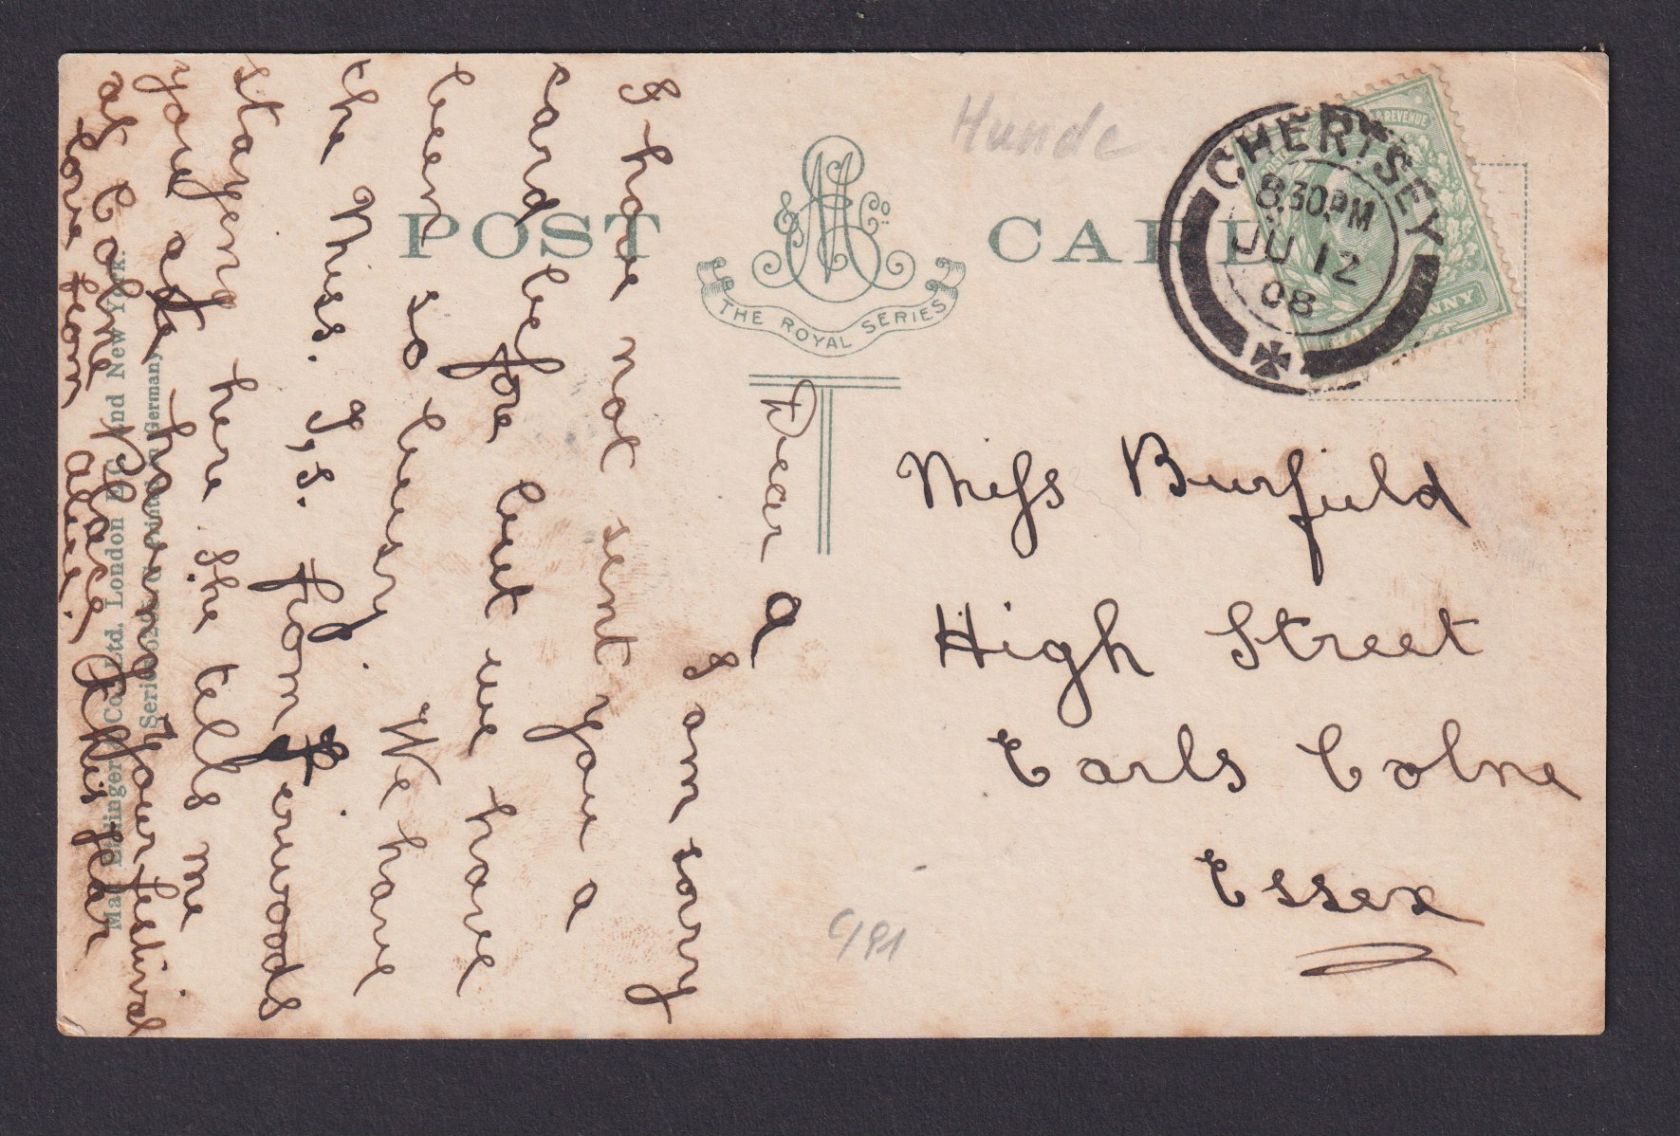 POST CARD
M E & Co.
THE ROYAL SERIES
Hunde
CHERTSEY
8.30PM
JU 12
08
POSTAGE & REVENUE
HALFPENNY
Miss Burfield
High Street
Earls Colne
Essex
Dear A
I am sorry
I have not sent you a
card before but we have
been so busy. We have
the Miss. J,s. from
staying here she tells me
your are having Your festival
at Colne Place this year
love from Alice.
Max Ettlinger & Co. Ltd. London E.C. and New York.
Series Printed in Germany